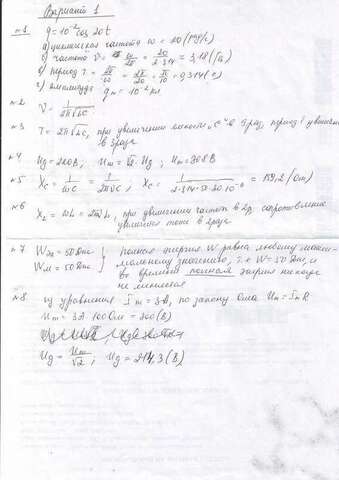 Вариант 1
№1 q = 10⁻² cos 20t
а) циклическая частота ω = 20 (рад/с)
б) частота ν = ω/2π = 20/2·3,14 = 3,18 (Гц)
в) период T = 2π/ω = 2π/20 = π/10 = 0,314 (с)
г) амплитуда qm = 10⁻² Кл
№2 ν = 1/2π√LC
№3 T = 2π√LC, при увеличении емкости "С" в раз, период увелич
в 3 раза
№4 Uд = 220В, Um = √2 · Uд ; Um = 308 В
№5 Xc = 1/ωC = 1/2πνC , Xc = 1/2·3,14·50·20·10⁻⁶ = 159,2 (Ом)
№6 XL = ωL = 2πνL, при увеличении частоты в 2р, сопротивление
увеличив тоже в 2 раза
№7 Wэл = 50 Дж } полная энергия W равна любому макси-
Wм = 50 Дж мальному значению, т.к W = 50 Дж, и
во времени полная энергия никогда
не меняется
№8 из уравнения Im = 3А, по закону Ома Um = Im R
Um = 3А · 100 Ом = 300 (В)
Uд = Um/√2 ; Uд = 214,3 (В)